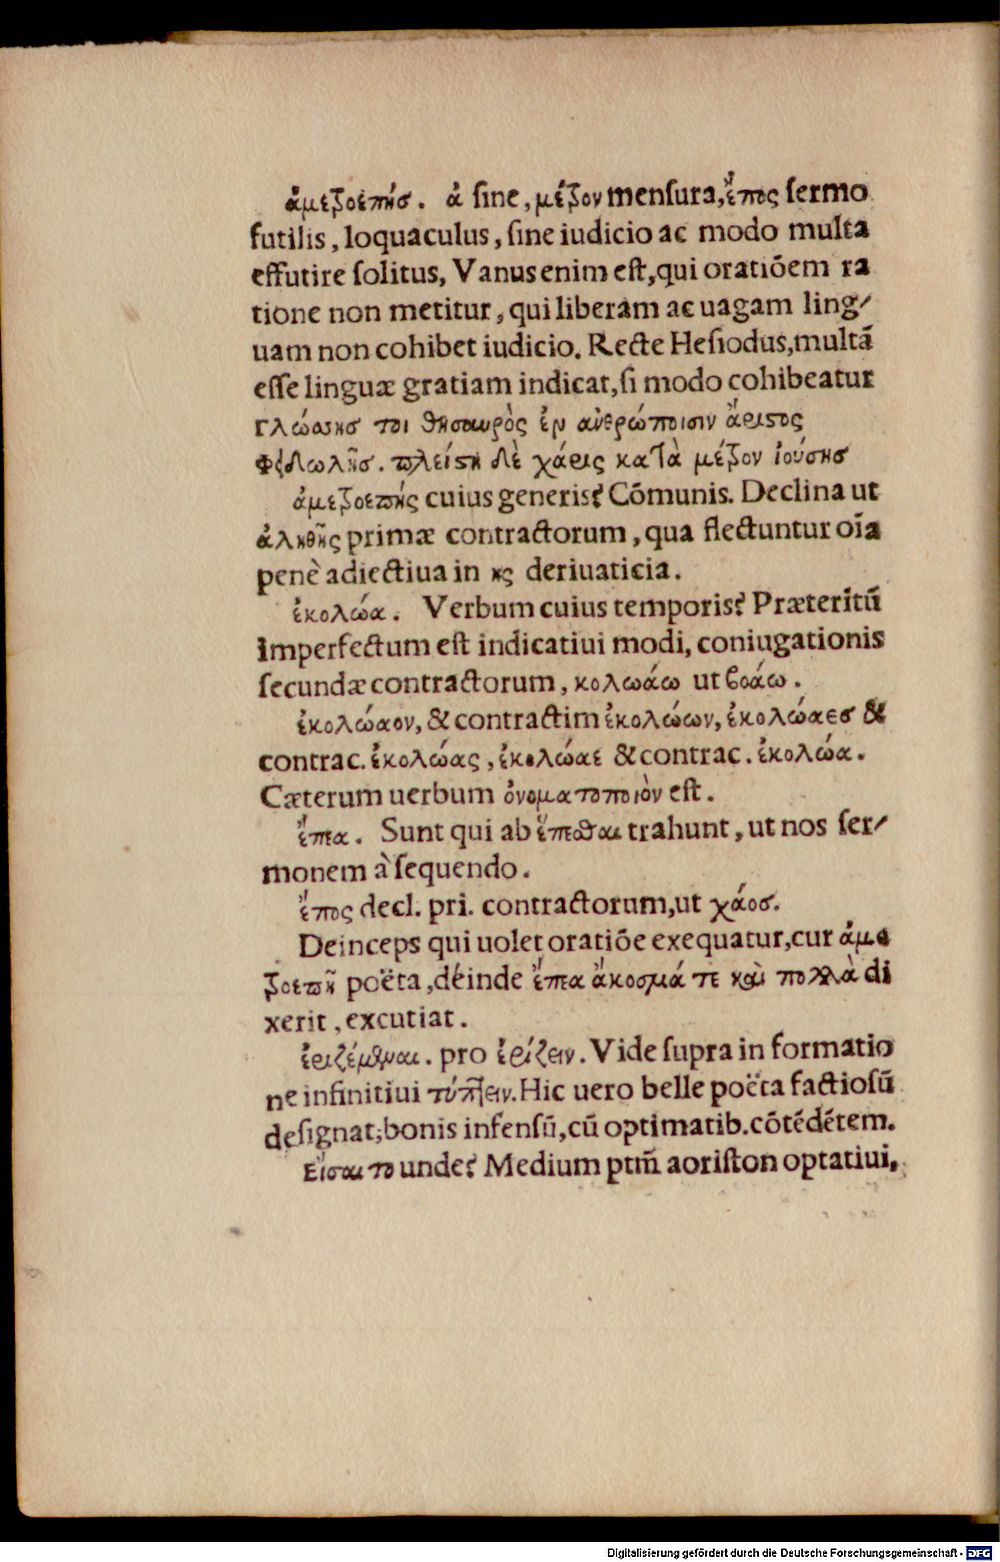 ἀμετροεπής. ἀ ſine, μέτρον menſura, ἔπος ſermo
futilis, loquaculus, ſine iudicio ac modo multa
effutire ſolitus, Vanus enim eſt, qui oratiōem ra
tione non metitur, qui liberam ac uagam ling⸗
uam non cohibet iudicio. Recte Heſiodus, multā
eſſe linguæ gratiam indicat, ſi modo cohibeatur
Γλώσσης τοι θησαυρὸς ἐν ἀνθρώποισιν ἄριστος
Φειδωλῆς. πλείστη δὲ χάρις κατὰ μέτρον ἰούσης
ἀμετροεπής cuius generis? Cōmunis. Declina ut
ἀληθῆς primæ contractorum, qua flectuntur oīa
penè adiectiua in ης deriuaticia.
ἐκολώα. Verbum cuius temporis? Præteritū
imperfectum eſt indicatiui modi, coniugationis
ſecundæ contractorum, κολωάω ut βοάω.
ἐκολώαον, & contractim ἐκολώων, ἐκολώαες &
contrac. ἐκολώας, ἐκολώαε & contrac. ἐκολώα.
Cæterum uerbum ὀνοματοποιὸν eſt.
ἔπεα. Sunt qui ab ἕπεσθαι trahunt, ut nos ſer⸗
monem à ſequendo.
ἔπος decl. pri. contractorum, ut χάος.
Deinceps qui uolet oratiōe exequatur, cur ἀμε
τροεπῆ poëta, déinde ἔπεα ἄκοσμά τε καὶ πολλὰ di
xerit, excutiat.
ἐριζέμεναι. pro ἐρίζειν. Vide ſupra in formatio
ne infinitiui τύπτειν. Hic uero belle poëta factioſū
deſignat; bonis infenſū, cū optimatib. cōtēdētem.
Εἴσαιτο unde? Medium ptm̄ aoriſton optatiui,
Digitalisierung gefördert durch die Deutsche Forschungsgemeinschaft - DFG